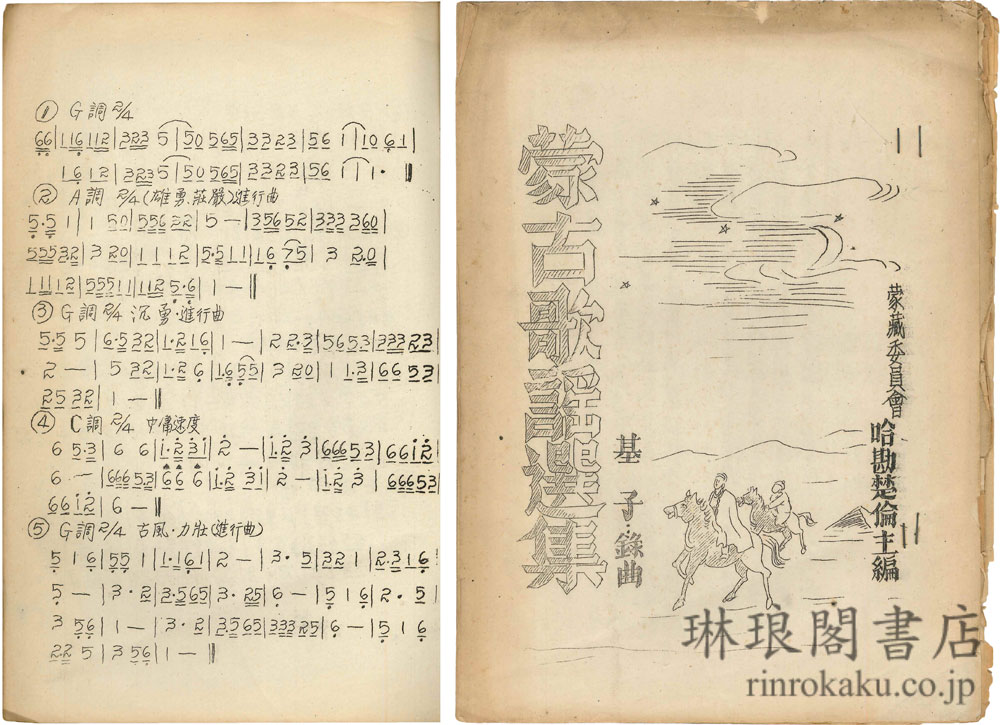 ① G調 2/4
66|116 112|323 5|50 565|33 23|56 1|10 61|
1612|323 5|50 565|3323|56 1|1·‖
② A調 2/4(雄勇.莊嚴)進行曲
5·5 1|1 50|556 32|5 —|35652|333 360|
55532|3 20|1 1 1 2|5·5 1 1|16 75|3 2·0|
11112|55511|112 5·6|1 —‖
③ G調 2/4 沉勇·進行曲
5·5 5|6·532|1·216|1 —|2 2·3|5653|33323|
2 —|5 32|1·2 6|1655|3 20|1 1·3|6653|
2532|1 —‖
④ C調 2/4 中庸速度
6 5·3|6 6|1·231|2 —|1·2 3|66653|6612|
6 —|66653|6 6 6|1·2 31|2 —|1·2 3|66653|
6612|6 —‖
⑤ G調 2/4 古風·力壯(進行曲)
5 16|55 1|1·161|2 —|3· 5|32 1|2·316|
5 —|3· 2|3·565|3· 25|6 —|5 16|2· 5|
3 56|1 —|3· 2|3565|33325|6 —|5 1 6|
2·2 5|3 56|1 —‖
蒙藏委員會 哈勘楚倫主編
蒙古歌謠選集
基子·錄曲
琳琅閣書店
rinrokaku.co.jp